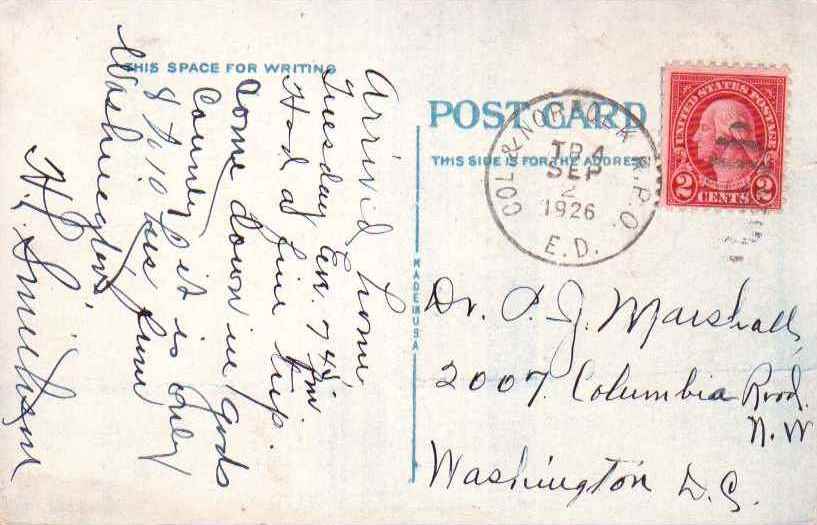 THIS SPACE FOR WRITING
Arrived home
Tuesday Eve. 7 45 Pm
Had a fine trip.
Come down in Gods
County it is only
8 to 10 hrs from
Washington
H.
POST CARD
THIS SIDE IS FOR THE ADDRESS
MADE IN USA
COL & NORFOLK R.P.O.
TR 4
SEP
2
1926
E.D.
UNITED STATES POSTAGE
2 CENTS 2
Dr. P. J. Marshall,
2007 Columbia Road.
N. W
Washington D.C.